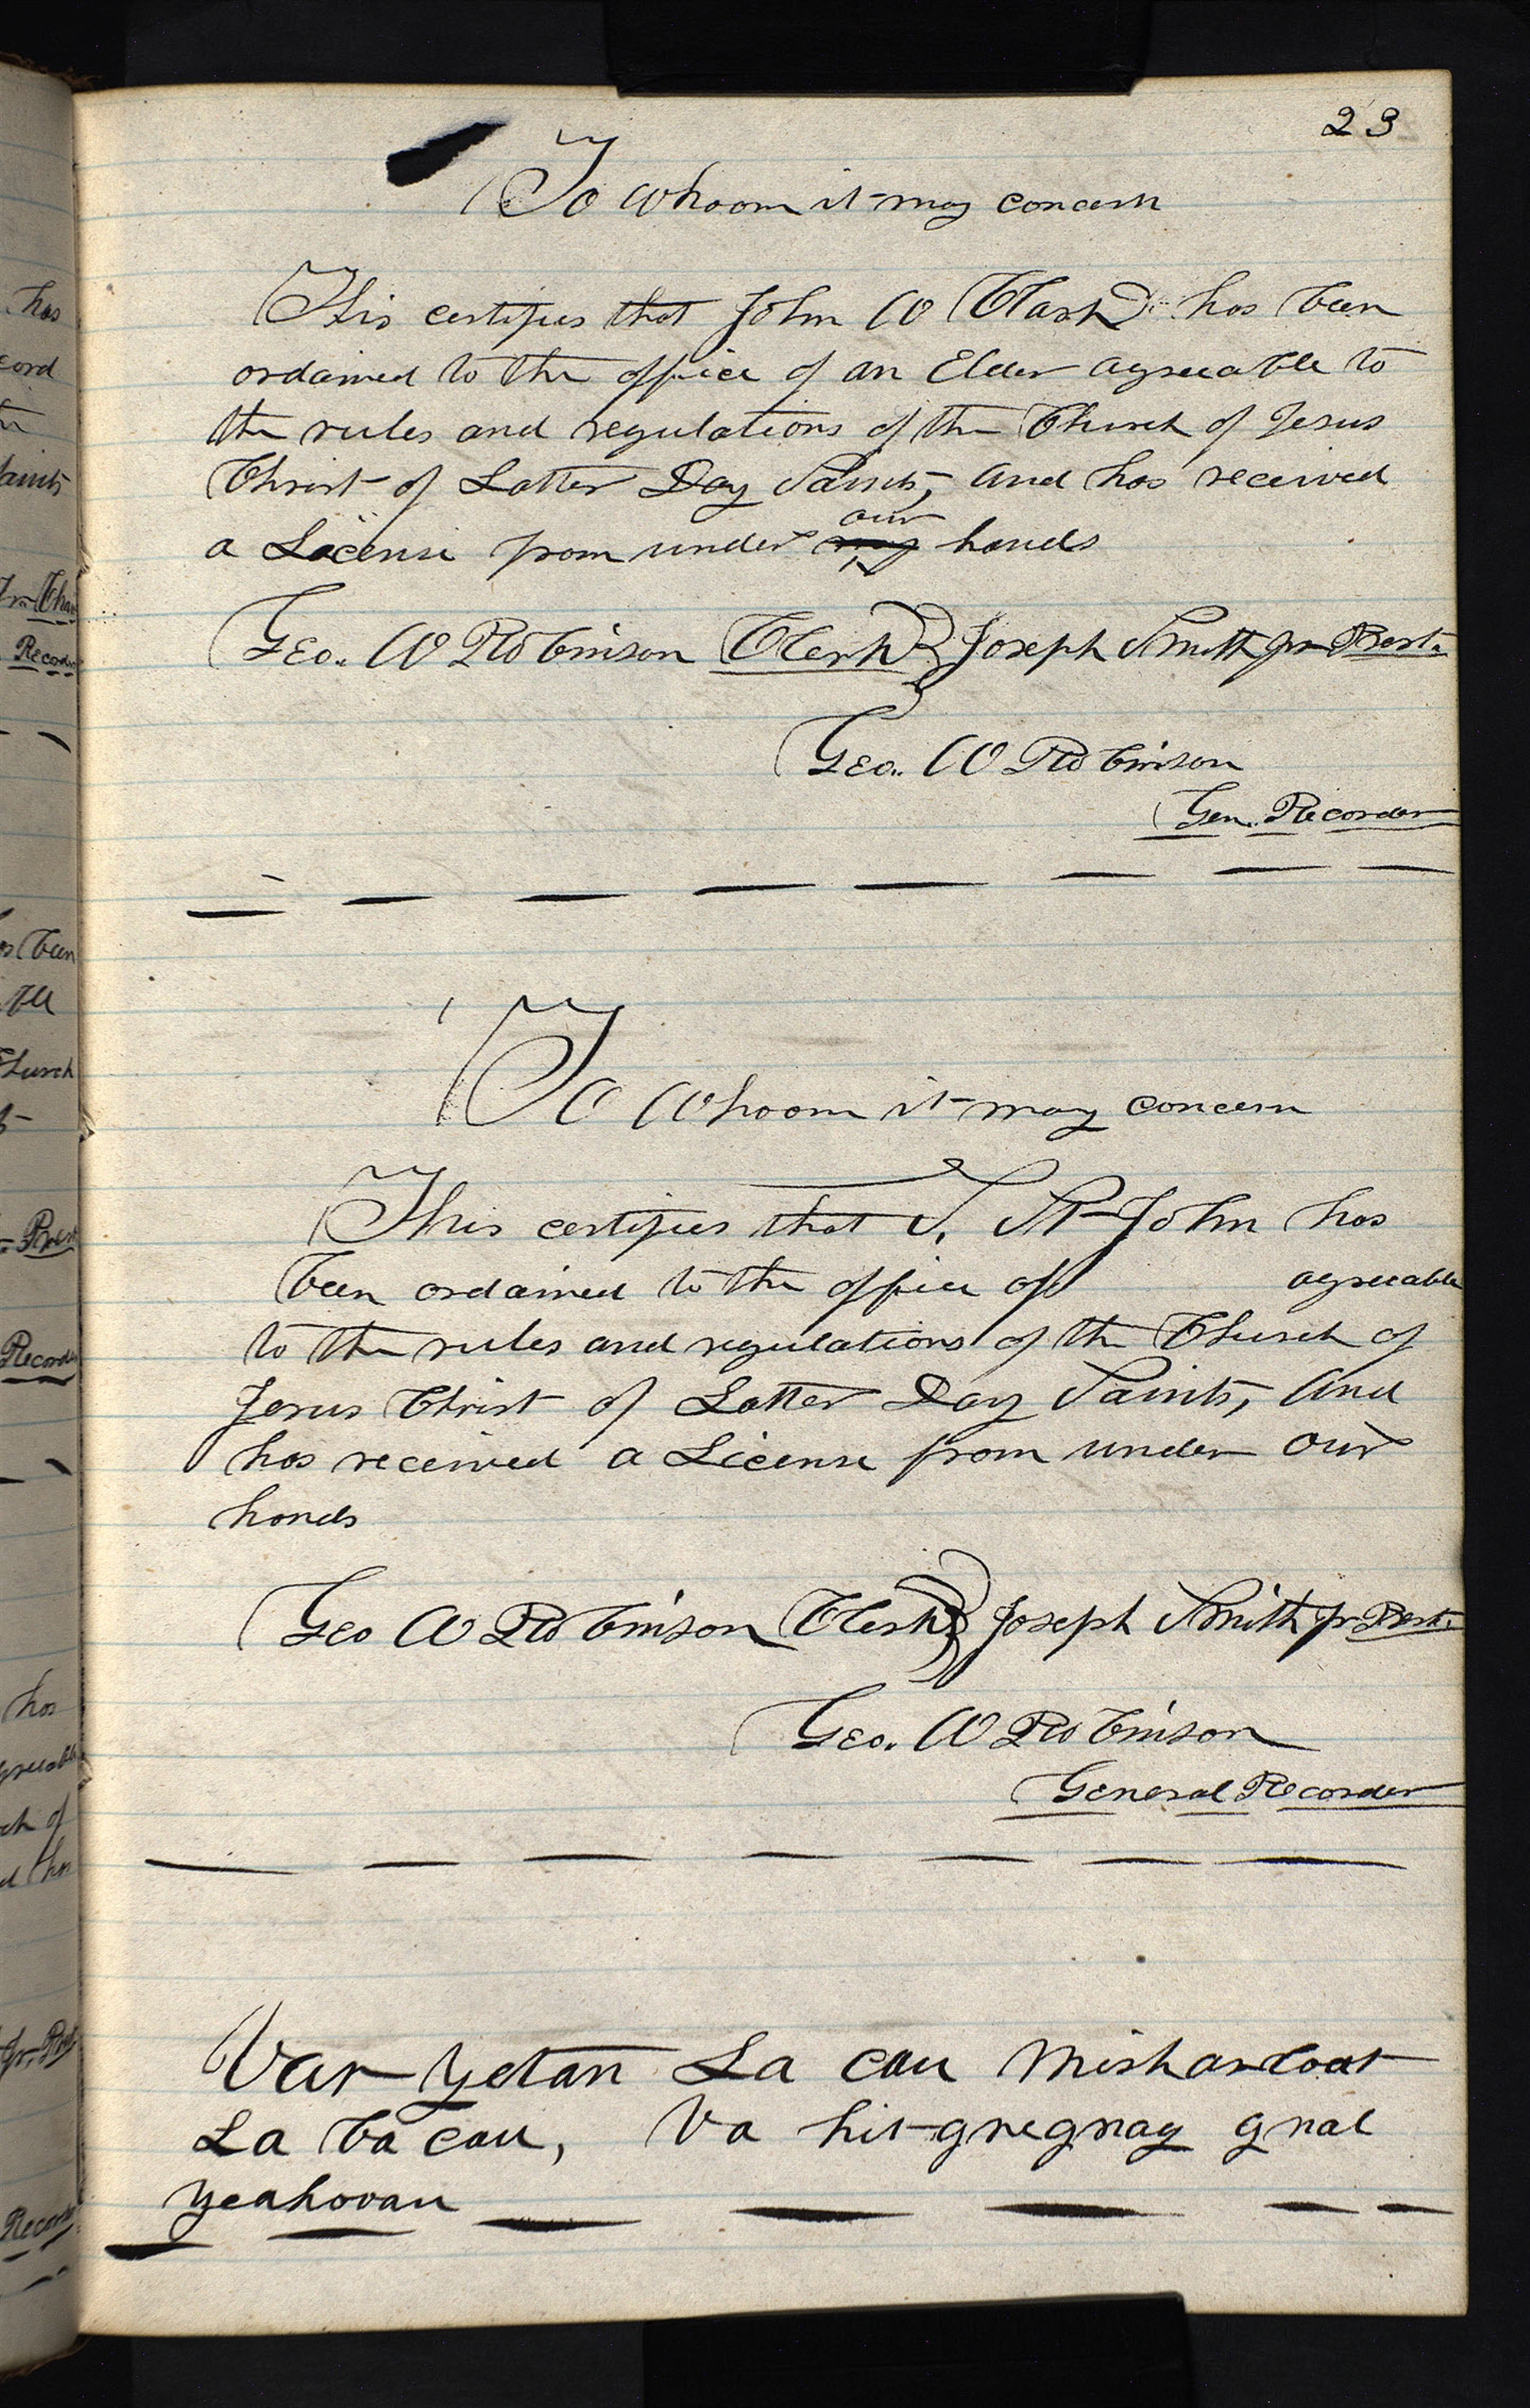 23
To Whoom it may concern
This certifies that John W Clark has been
ordained to the office of an Elder agreeable to
the rules and regulations of the Church of Jesus
Christ of Latter Day Saints, and has received
our
a License from under my hands
Geo. W Robinson Clerk Joseph Smith jr Prest.
Geo. W Robinson
Gen. Recorder
To Whoom it may concern
This certifies that S. St John has
been ordained to the office of agreeable
to the rules and regulations of the Church of
Jesus Christ of Latter Day Saints, and
has received a License from under our
hands
Geo W Robinson Clerk Joseph Smith jr Prest.
Geo. W Robinson
General Recorder
Var Yetan La cau
La ba cau, Va hit gnegnay gnal
Yeahovau